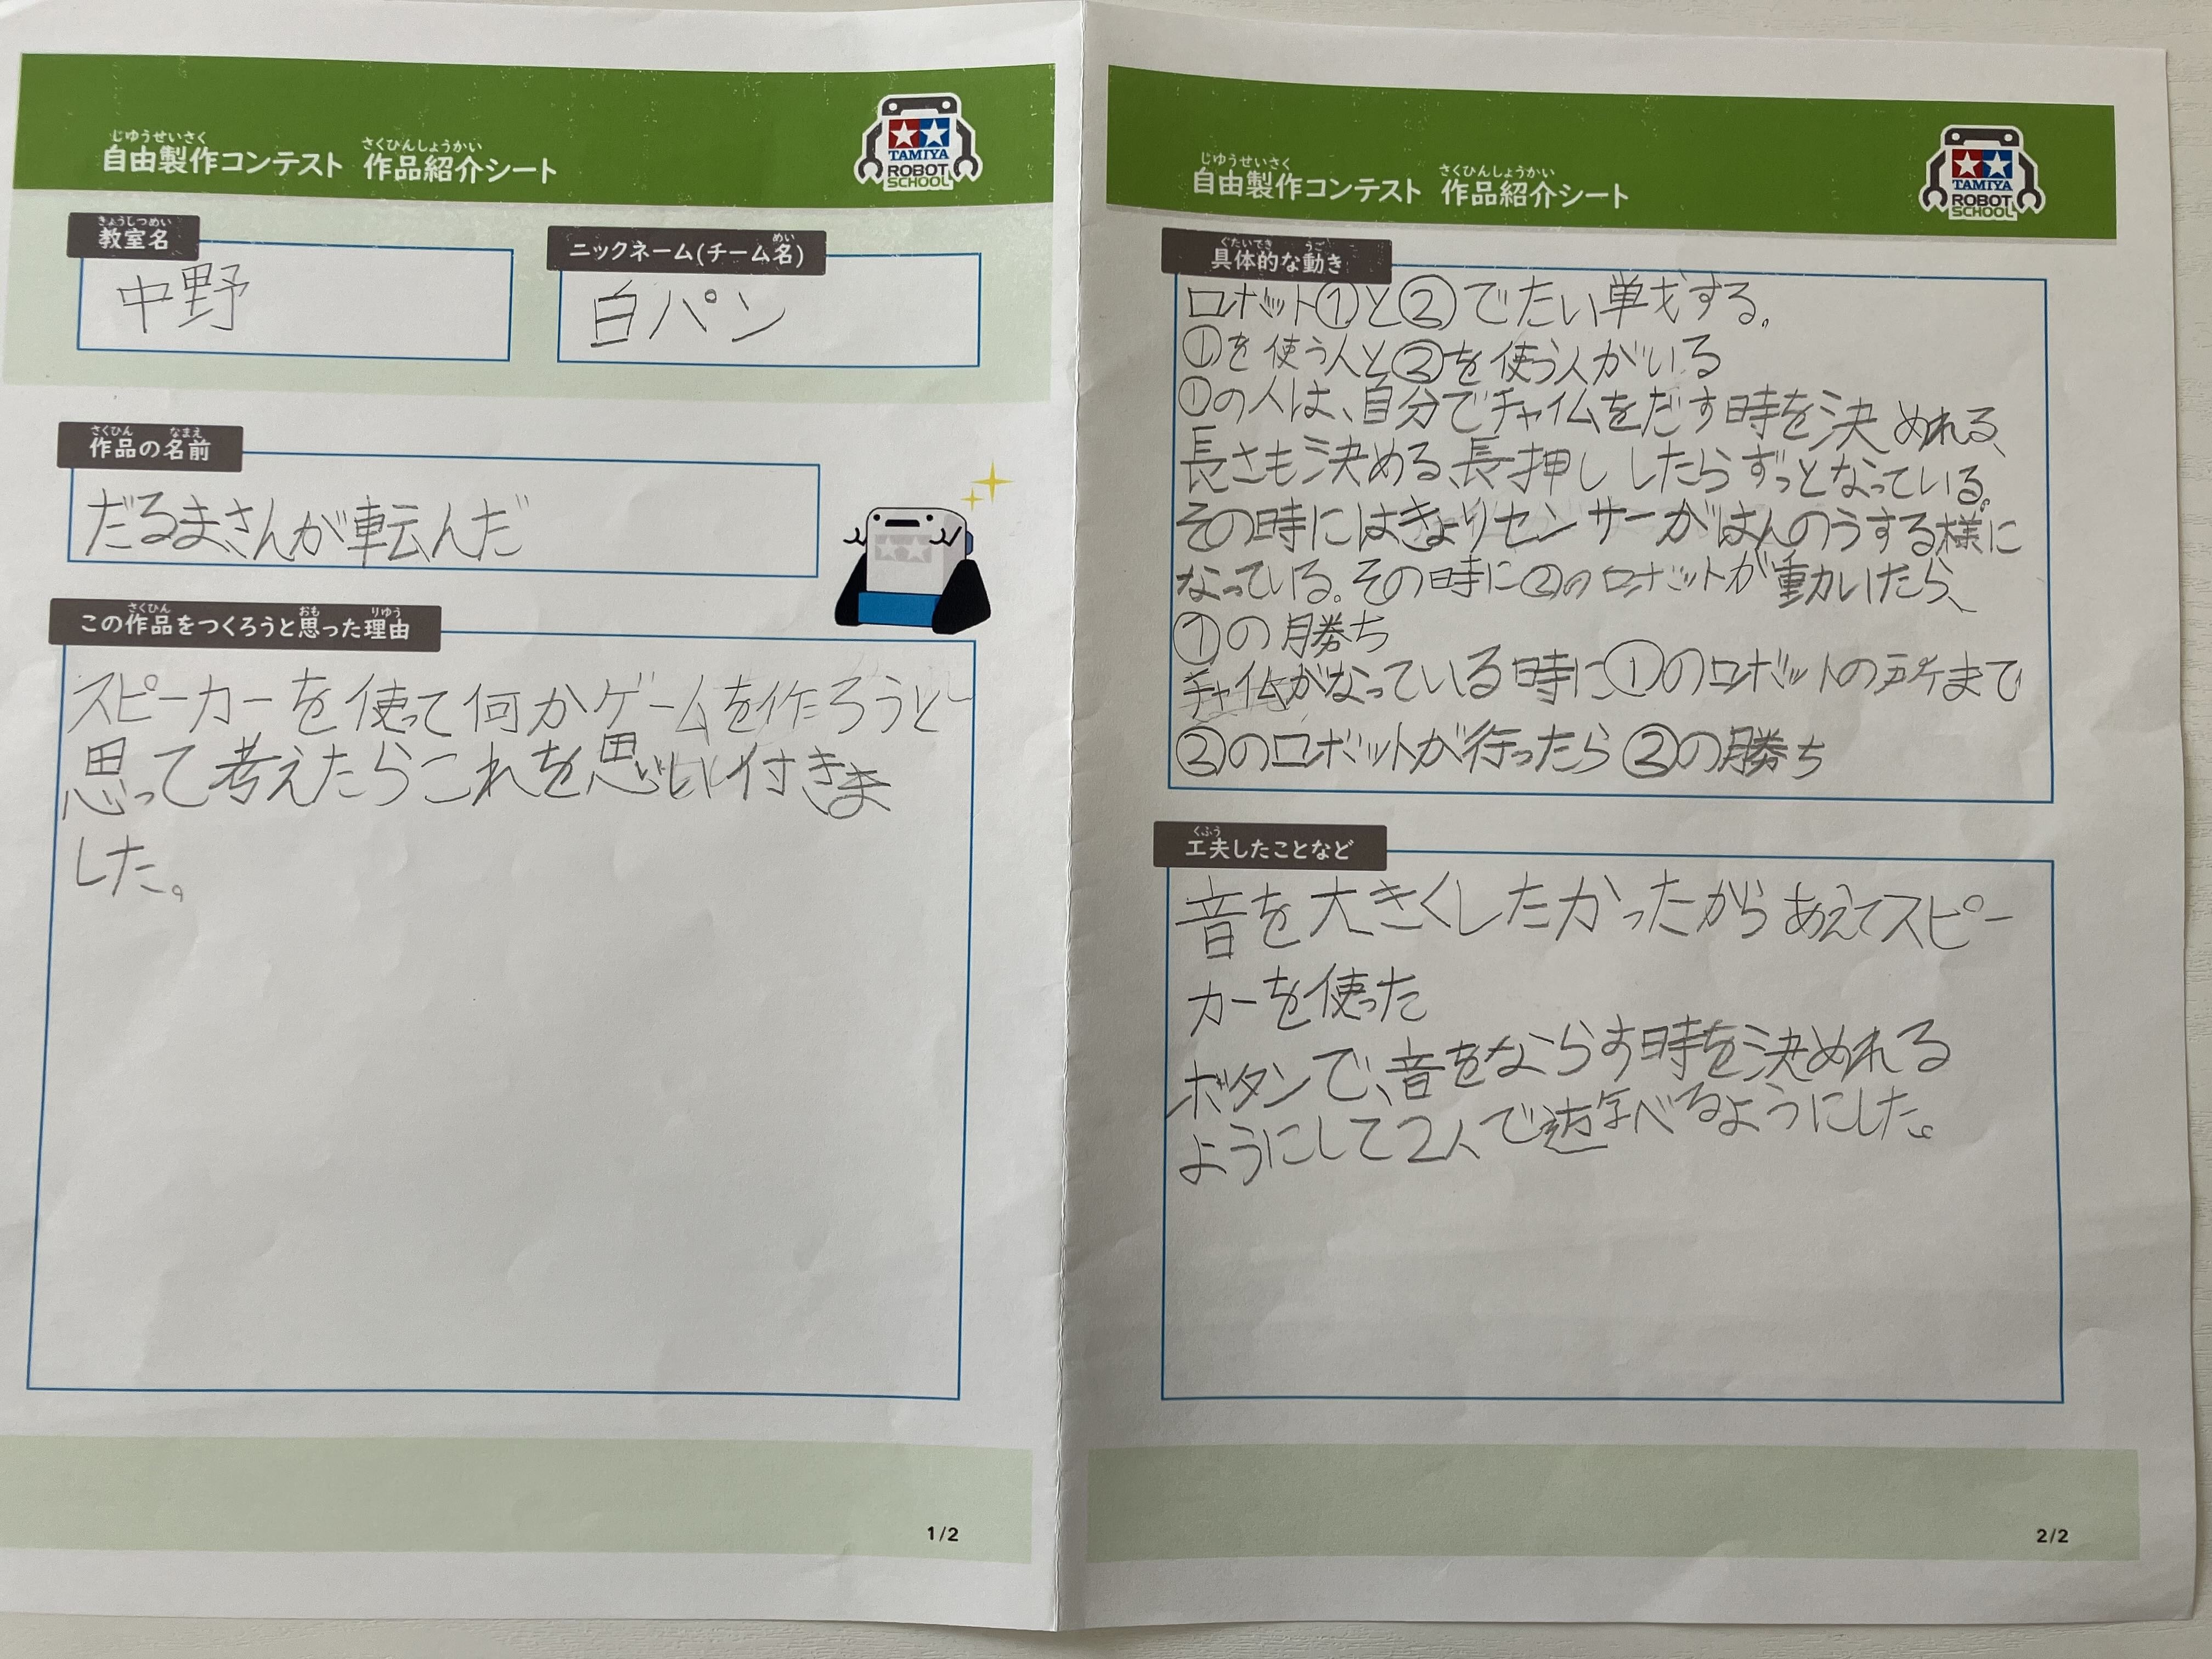 じゆうせいさく さくひんしょうかい
自由製作コンテスト 作品紹介シート
TAMIYA
ROBOT
SCHOOL
きょうしつめい
教室名
中野
めい
ニックネーム(チーム名)
白パン
さくひん なまえ
作品の名前
だるまさんが転んだ
さくひん おも りゆう
この作品をつくろうと思った理由
スピーカーを使って何かゲームを作ろうと
思って考えたらこれを思い付きま
した。
1/2
じゆうせいさく さくひんしょうかい
自由製作コンテスト 作品紹介シート
TAMIYA
ROBOT
SCHOOL
ぐたいてき うご
具体的な動き
ロボット①と②でたい戦する。
①を使う人と②を使う人がいる
①の人は、自分でチャイムをだす時を決めれる、
長さも決める、長押ししたらずっとなっている。
その時にはきょりセンサーがはんのうする様に
なっている。その時に②のロボットが動いたら、
①の勝ち
チャイムがなっている時に①のロボットの所まで
②のロボットが行ったら②の勝ち
くふう
工夫したことなど
音を大きくしたかったからあえてスピー
カーを使った
ボタンで、音をならす時を決めれる
ようにして2人で遊べるようにした。
2/2